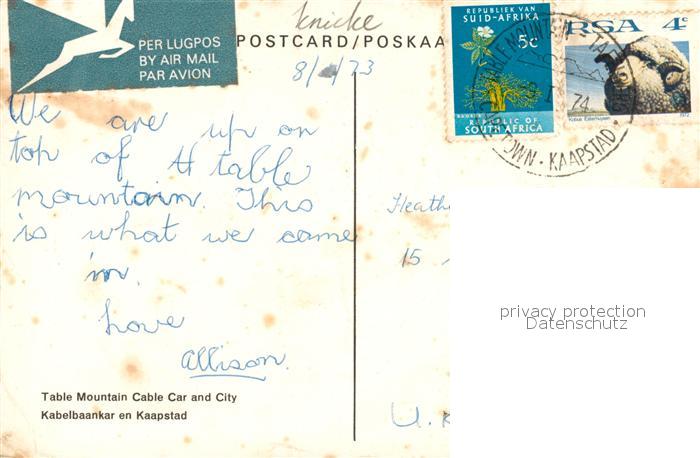 knicke
PER LUGPOS
BY AIR MAIL
PAR AVION
POSTCARD/POSKAA
8/ /73
REPUBLIEK VAN
SUID-AFRIKA
5c
REPUBLIC OF
SOUTH AFRICA
RSA 4c
1972
TABLE MOUNTAIN
TOWN · KAAPSTAD
74
We are up on
top of A table
mountain. This
is what we came
in.
Love
Allison.
Heathe
15
U.K
privacy protection
Datenschutz
Table Mountain Cable Car and City
Kabelbaankar en Kaapstad